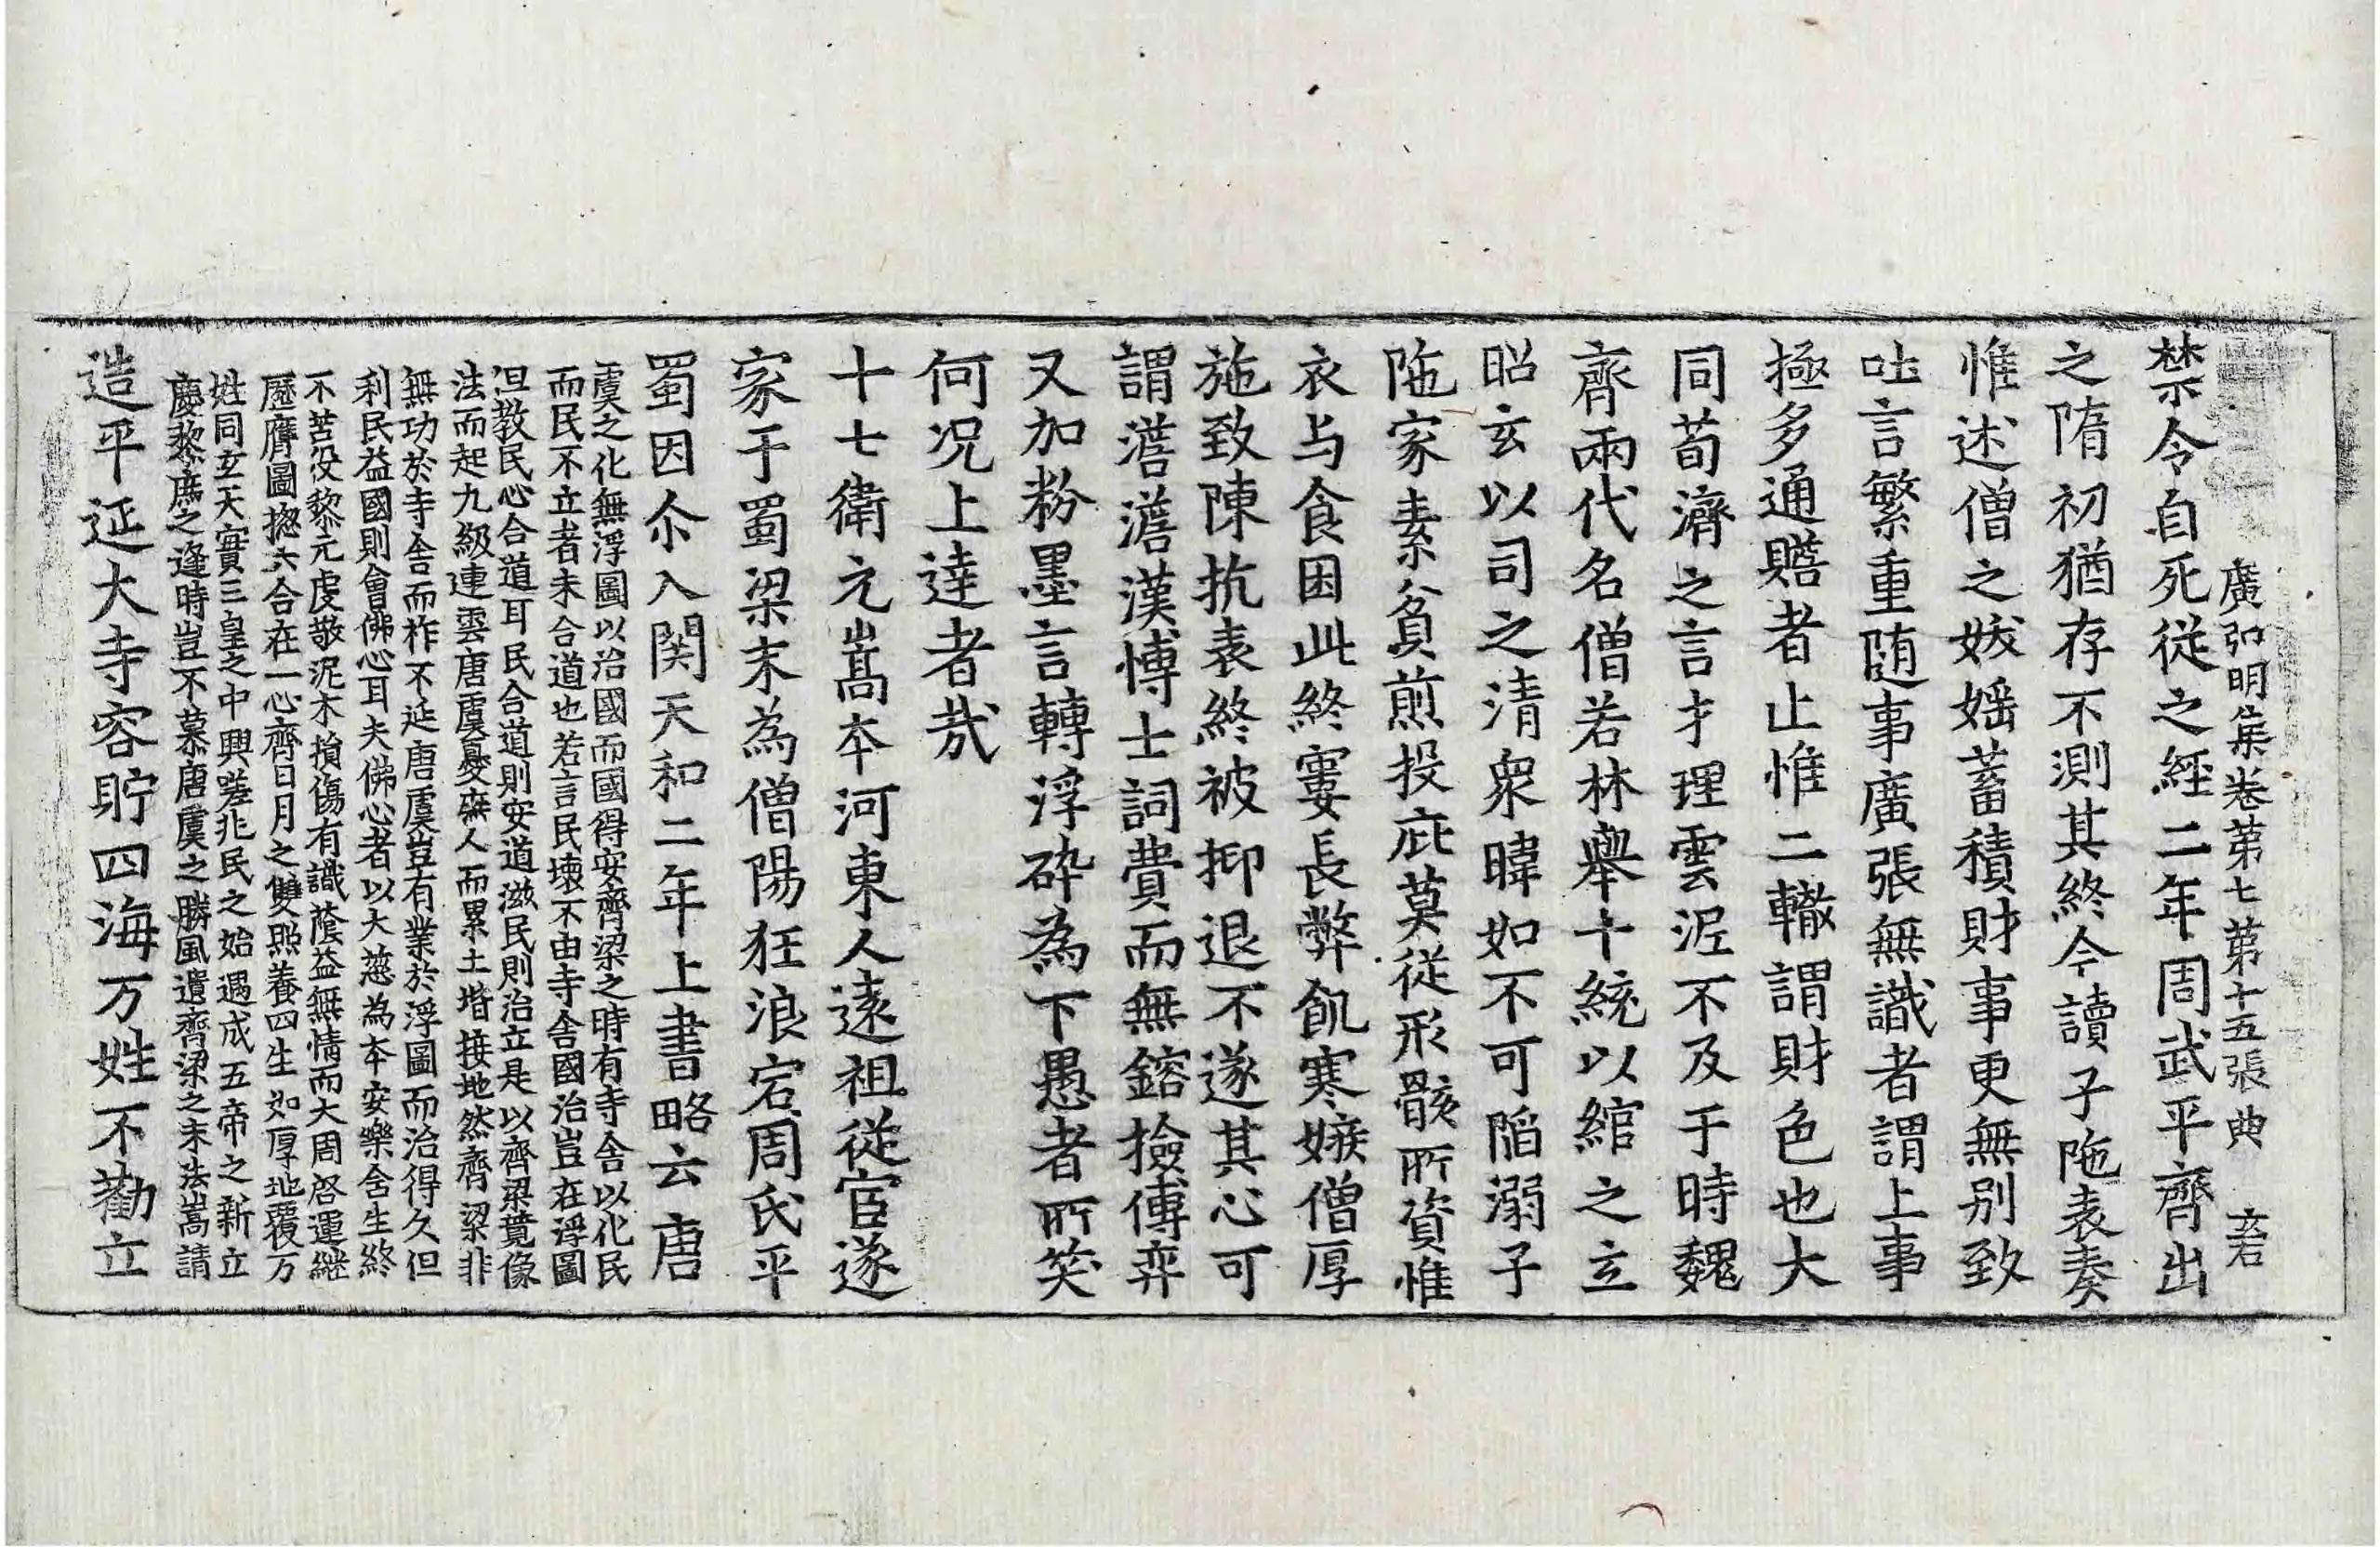 廣弘明集卷第七 第十五張 典 君
禁令自死從之經二年周武平齊出
之隋初猶存不測其終今讀子陁表奏
惟述僧之妭婬蓄積財事更無別致
吐言繁重随事廣張無識者謂上事
極多通贍者止惟二轍謂財色也大
同荀濟之言才理雲泥不及于時魏
齊兩代名僧若林舉十統以綰之立
昭玄以司之清衆暐如不可陷溺子
陁家素貧煎投庇莫從形骸所資惟
衣与食困此終寠長弊飢寒嫉僧厚
施致陳抗表終被抑退不遂其心可
謂澹澹漢博士詞費而無鎔撿傳弈
又加粉墨言轉浮碎為下愚者所笑
何況上達者㢤
十七衛元嵩本河東人遠祖從宦遂
家于蜀梁末為僧陽狂浪宕周氏平
蜀因尒入関天和二年上書略云唐
虞之化無浮圖以治國而國得安齊梁之時有寺舍以化民
而民不立者未合道也若言民壞不由寺舍國治豈在浮圖
但教民心合道耳民合道則安道滋民則治立是以齊梁竟像
法而起九級連雲唐虞憂癈人而累土堦接地然齊梁非
無功於寺舍而祚不延唐虞豈有業於浮圖而治得久但
利民益國則會佛心耳夫佛心者以大慈為本安樂含生終
不苦役黎元虔敬泥木損傷有識蔭益無情而大周啓運継
歷膺圖揔六合在一心齊日月之雙照養四生如厚地覆万
姓同玄天實三皇之中興嗟兆民之始遇成五帝之新立
慶黎庶之逢時豈不慕唐虞之勝風遺齊梁之末法嵩請
造平延大寺容貯四海万姓不勸立